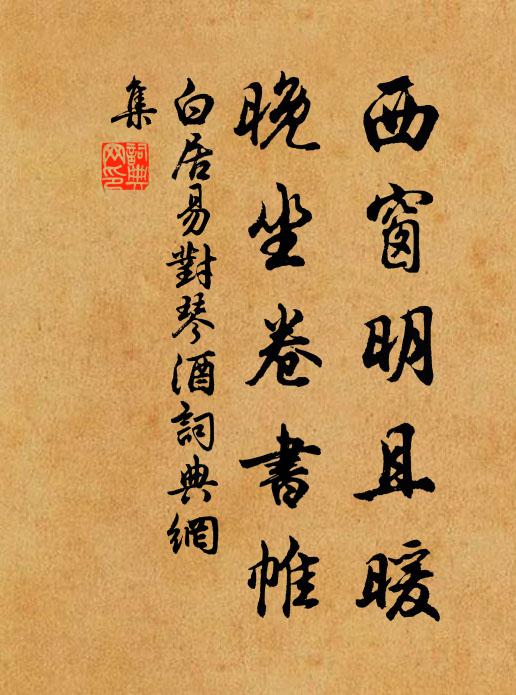 西窗明且暖
晚坐卷書帷
白居易對琴酒詞典網
集
詞典
網印